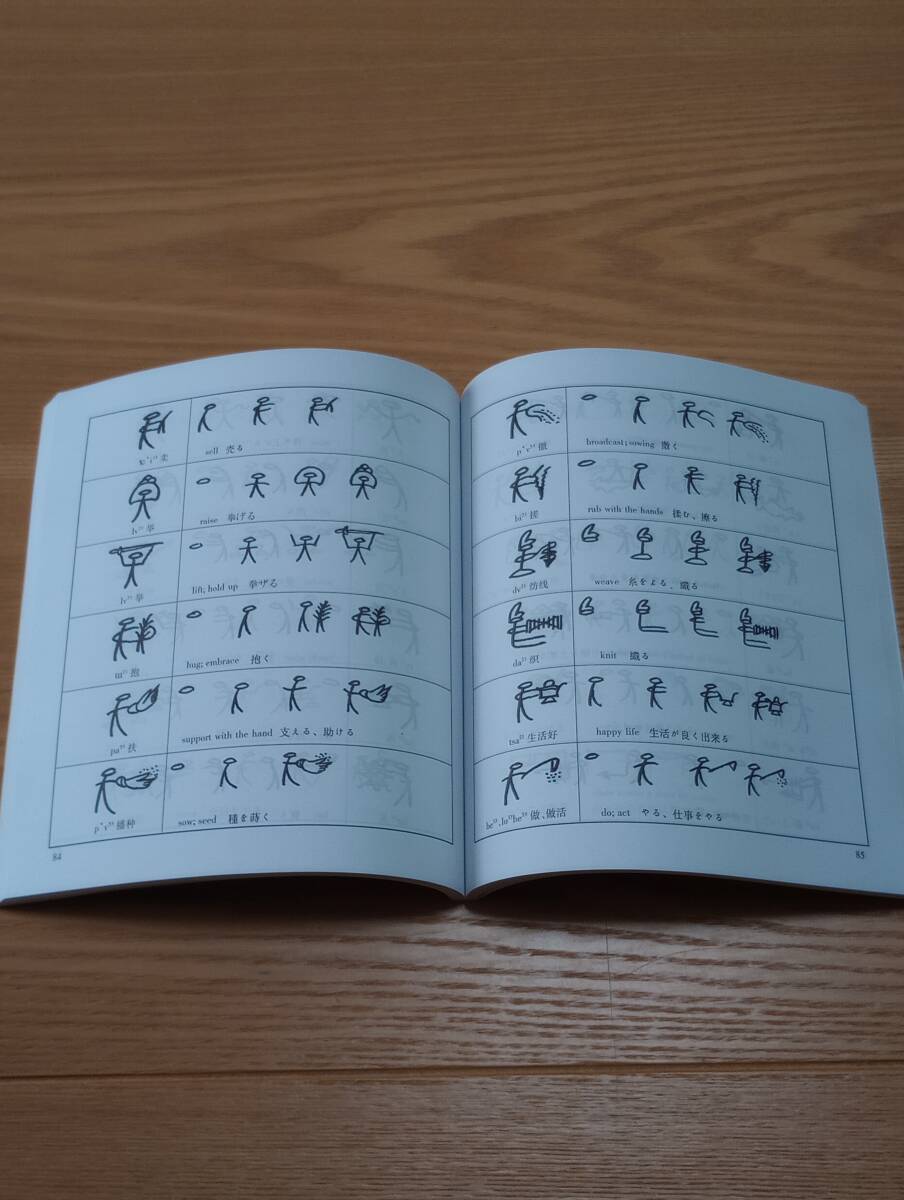 卖
sell 売る
举
raise 挙げる
举
lift; hold up 挙ザる
抱
hug; embrace 抱く
pa³³扶
support with the hand 支える、助ける
p‘v⁵⁵播种
sow; seed 種を蒔く
84
撒
broadcast; sowing 撒く
搓
rub with the hands 揉む、擦る
纺线
weave 糸をよる、織る
织
knit 織る
生活好
happy life 生活が良く出来る
做、做活
do; act やる、仕事をやる
85